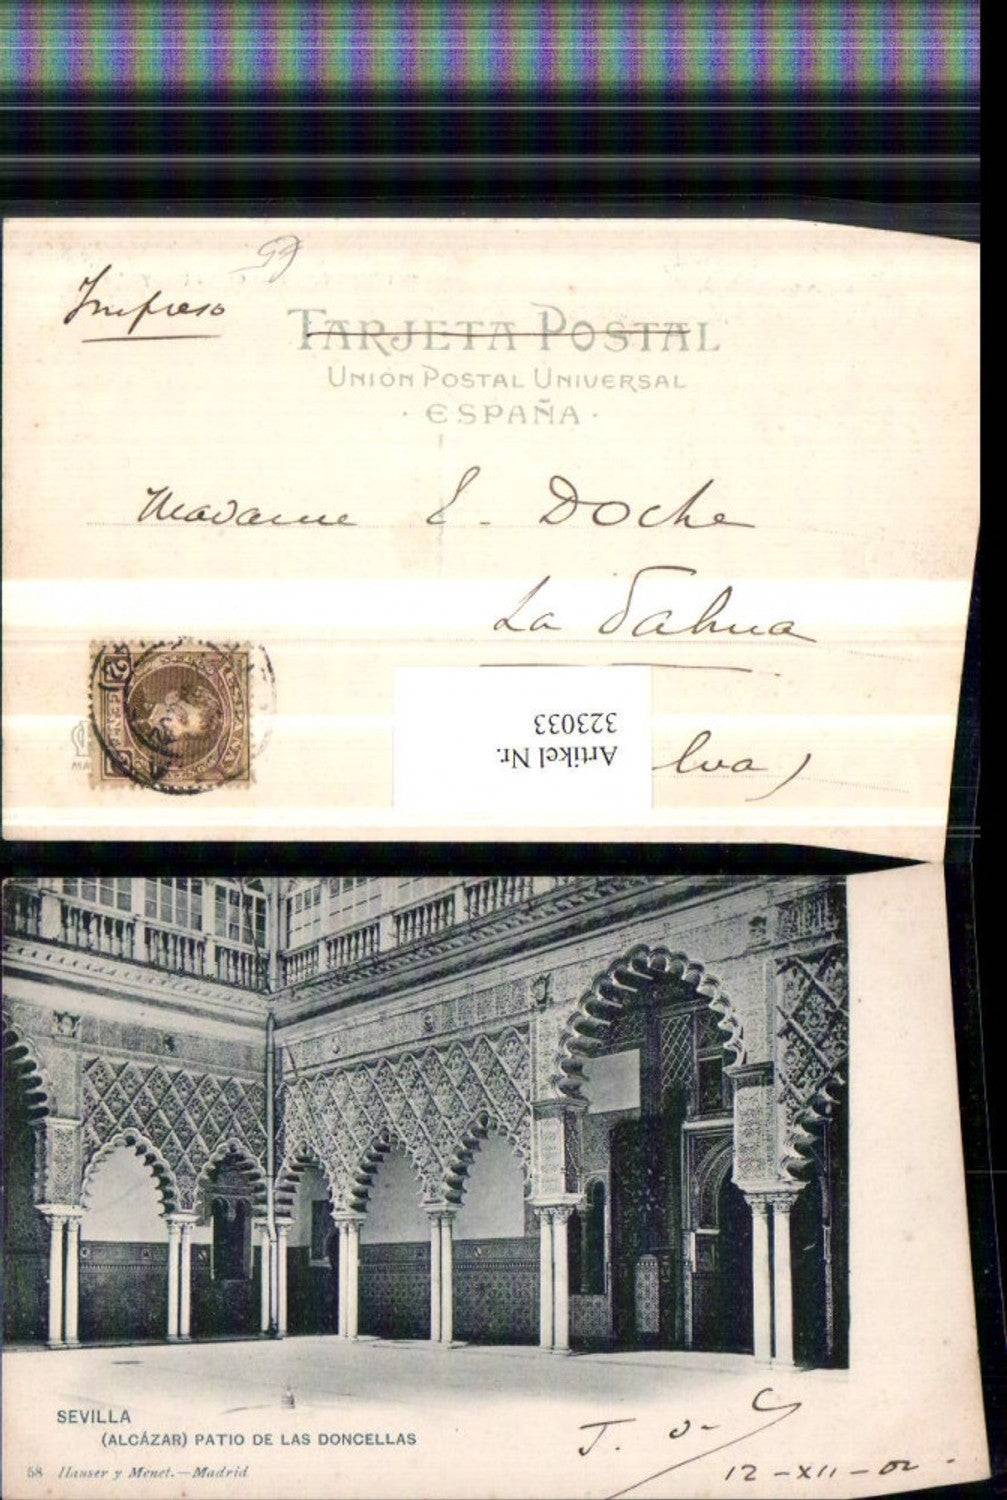 Impreso
TARJETA POSTAL
UNIÓN POSTAL UNIVERSAL
· ESPAÑA ·
Madame E. Doche
La Palma
Artikel Nr.
323033
lva)
SEVILLA
(ALCÁZAR) PATIO DE LAS DONCELLAS
58 Hauser y Menet.—Madrid
12-XII-02-